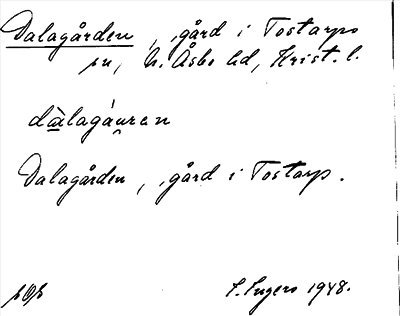 Dalagården, gård i Tostarps
sn, N. Åsbo hd, Krist. l.
dàlagáu̯ren
Dalagården, gård i Tostarp.
S. Ingers 1948.